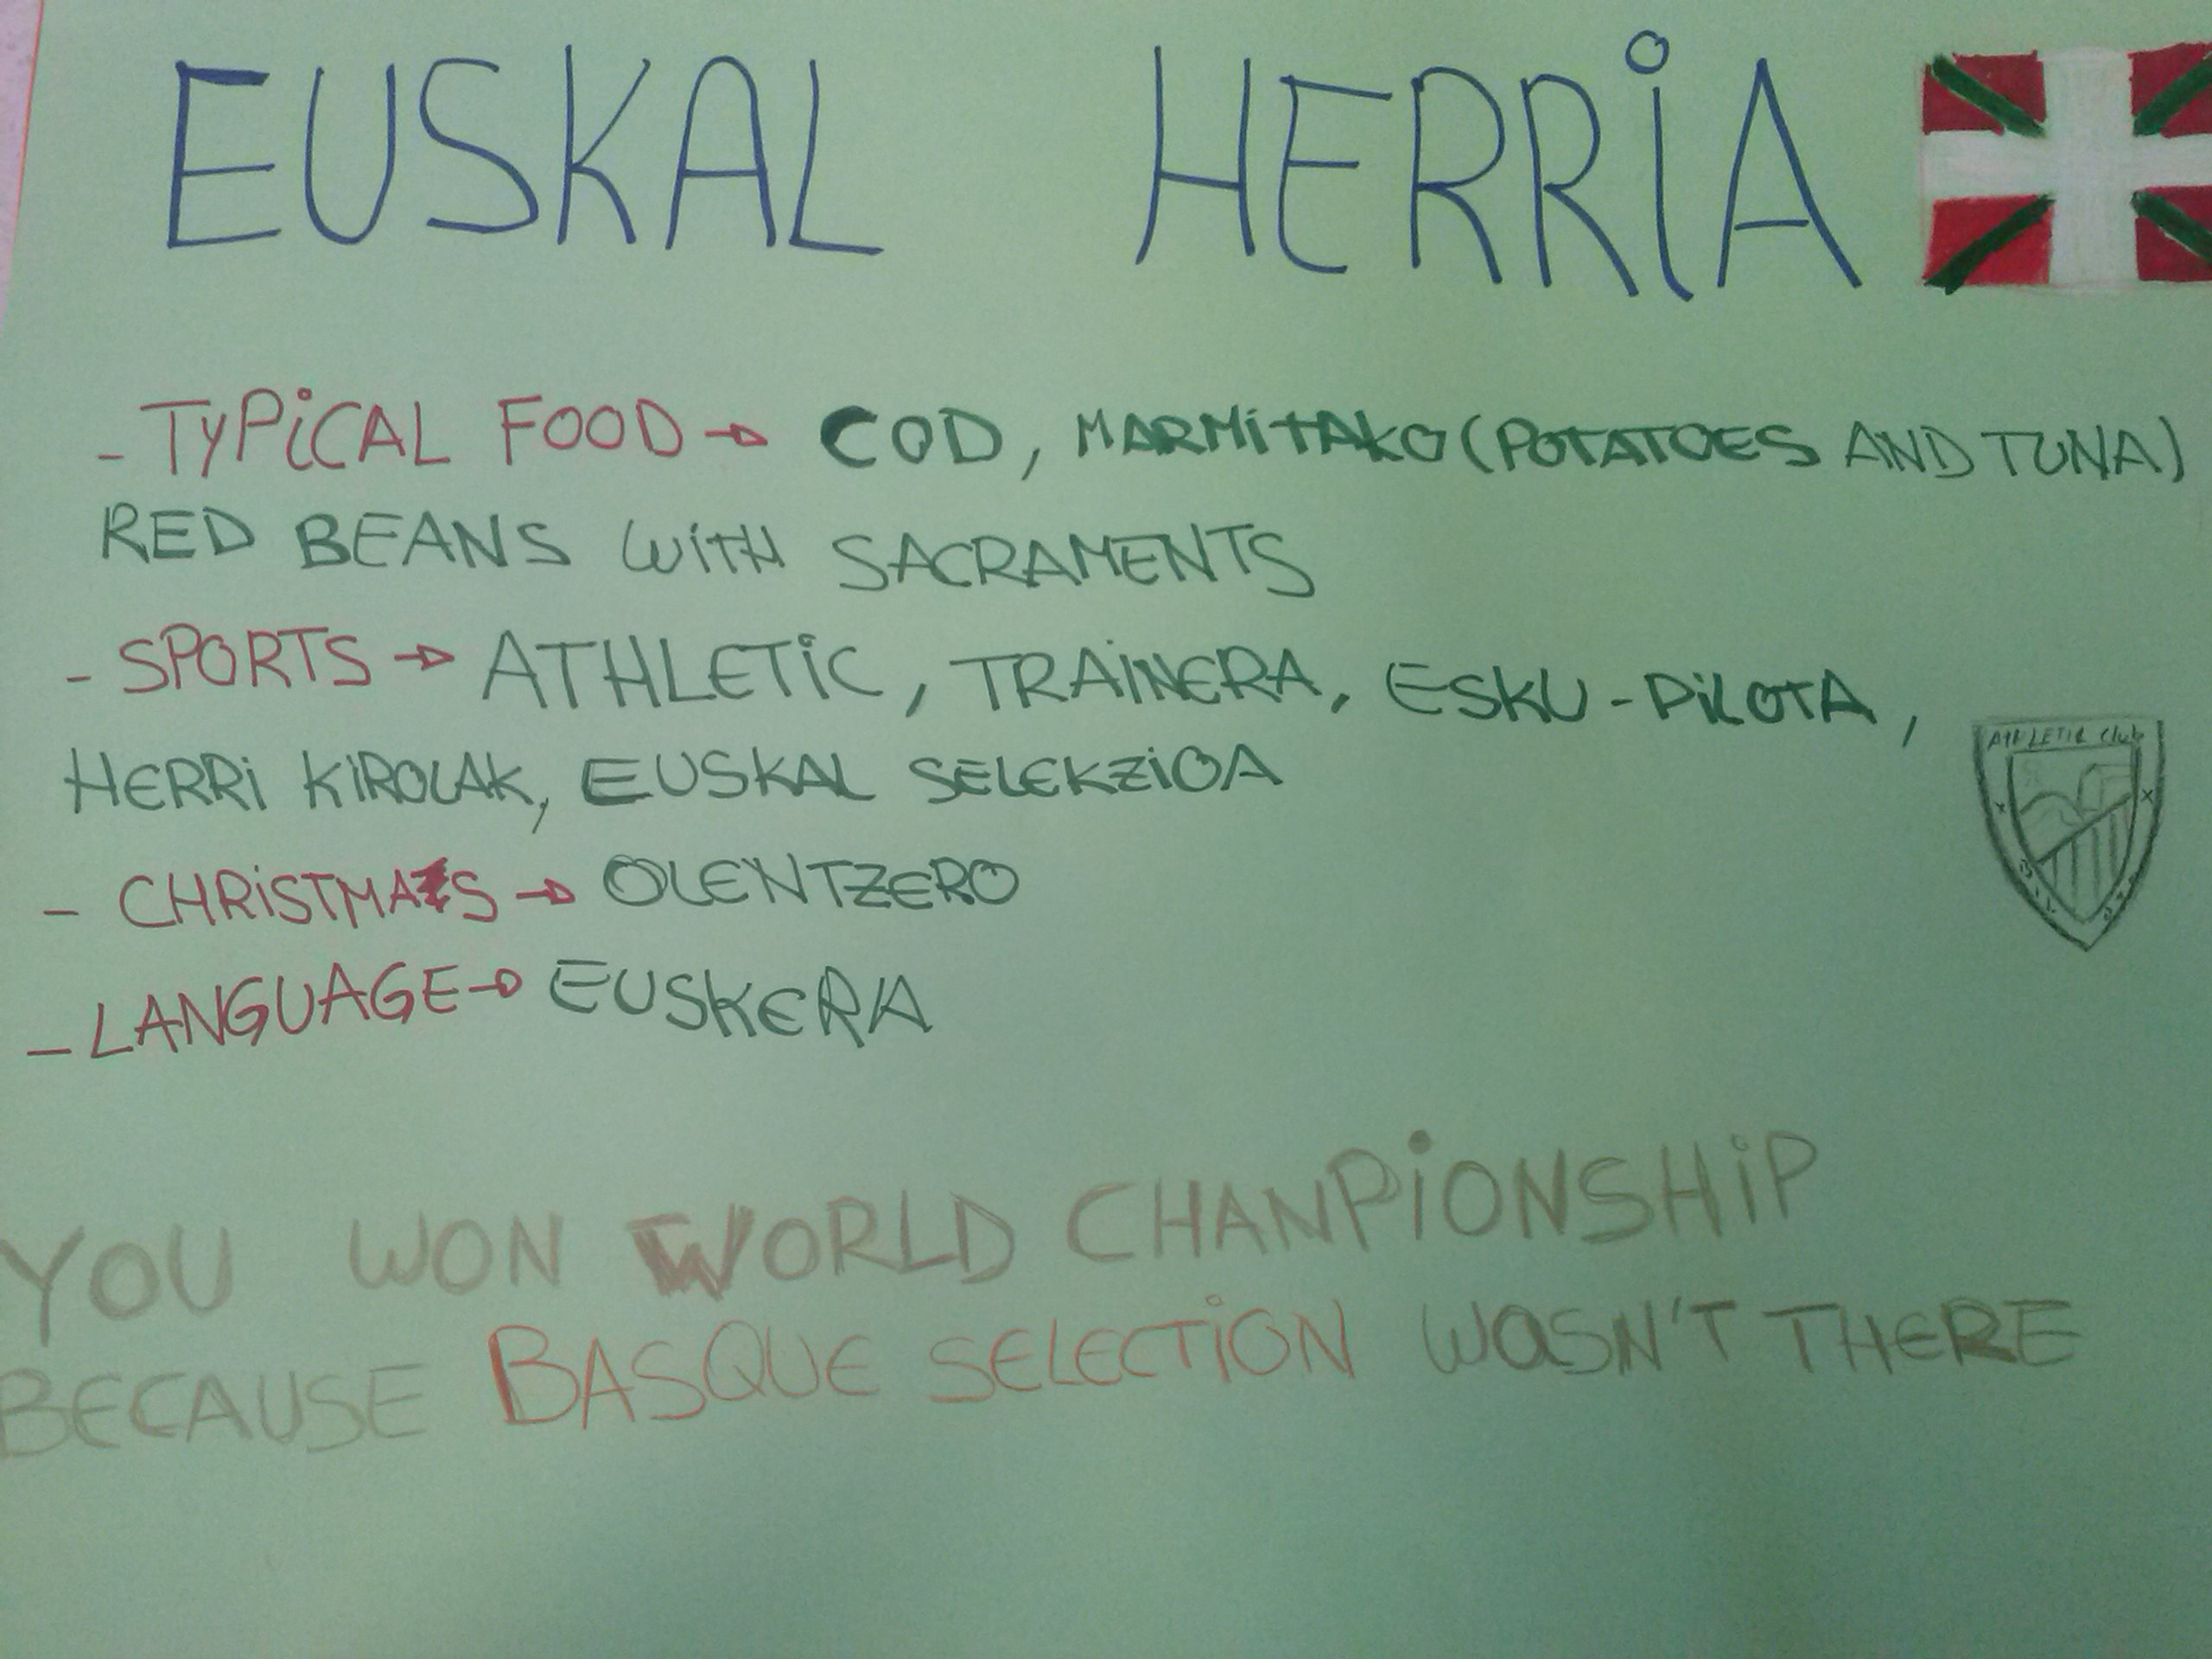 EUSKAL HERRiA
- TYPiCAL FOOD → COD, MARMiTAKO (POTATOES AND TUNA)
RED BEANS WiTH SACRAMENTS
- SPORTS → ATHLETiC, TRAiNERA, ESKU-PiLOTA,
HERRi KiROLAK, EUSKAL SELEKZiOA
ATHLETIC Club
- CHRiSTMAS → OLENTZERO
- LANGUAGE → EUSKERA
YOU WON WORLD CHANPiONSHiP
BECAUSE BASQUE SELECTiON WASN'T THERE